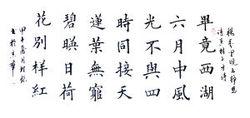 畢竟西湖
六月中風
光不與四
時同接天
蓮葉無窮
碧映日荷
花別樣紅